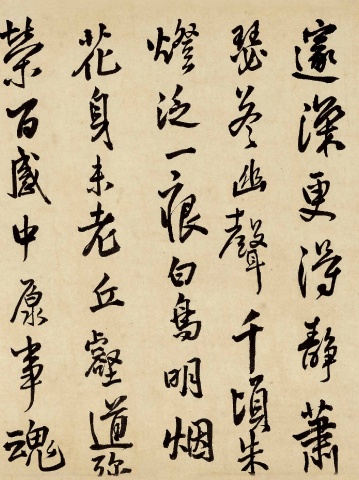 邃深更得靜蕭
瑟答幽聲千頃朱
燈泛一痕白鳥明烟
花身未老丘壑道弥
榮百感中原事魂